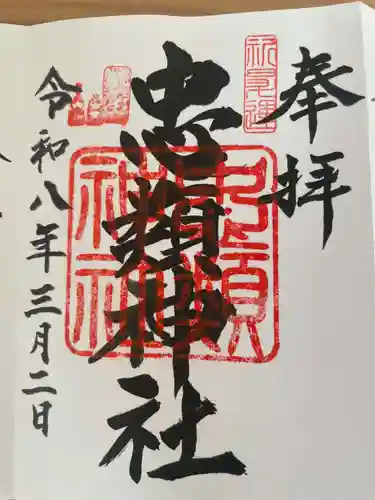 奉拝
忠類神社
令和八年三月二日